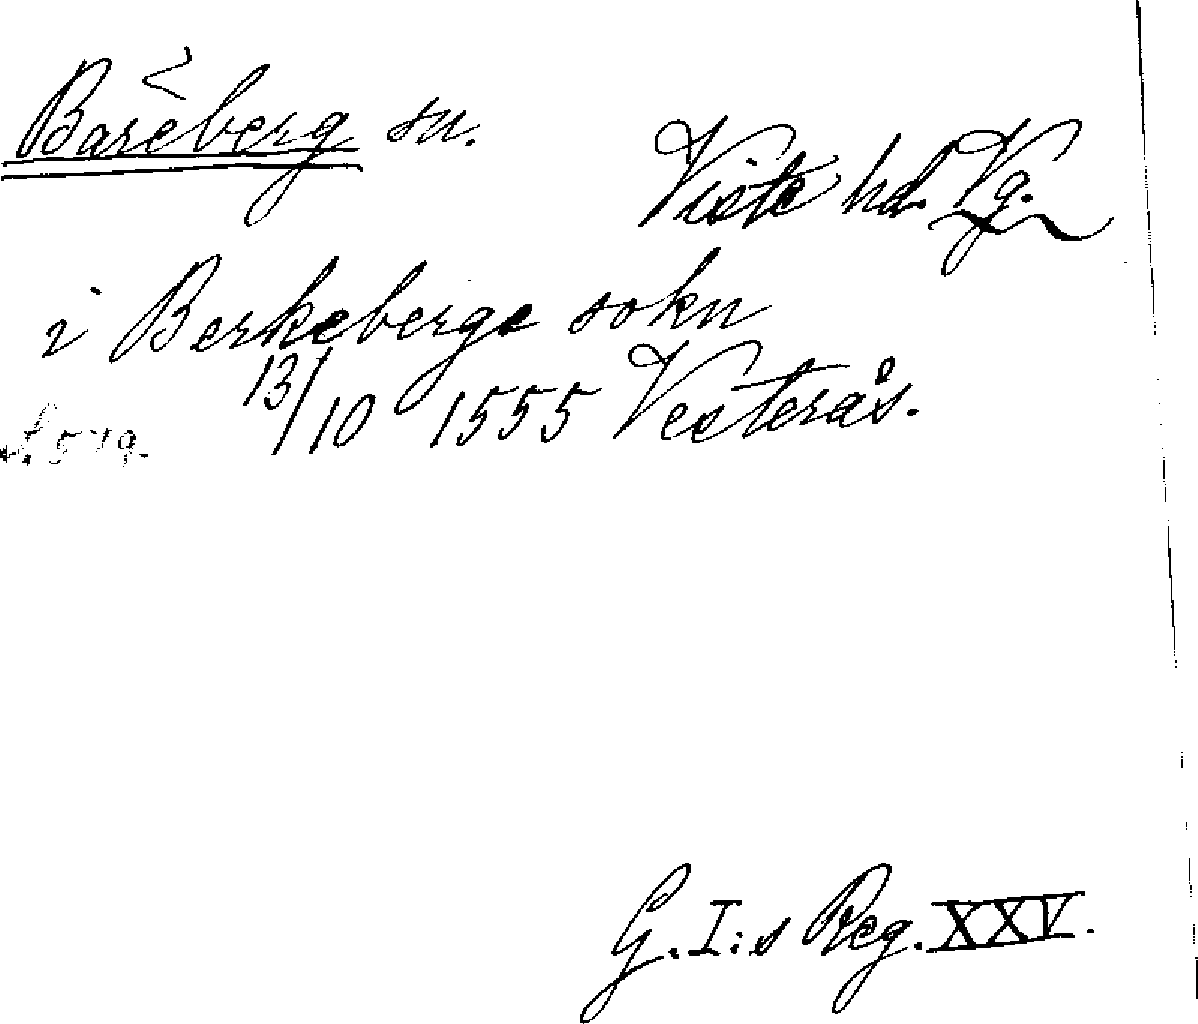 Bareberg sn.
Viste hd. Vg.
i Berkeberge sokn
13/10 1555 Vesterås.
G. I:s Reg. XXV.